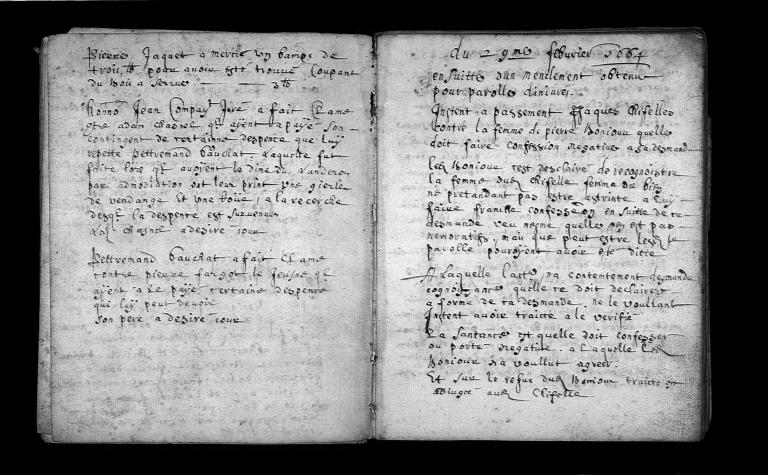 Pierre Jaquet a mercie un bamps de
trois lb pour avoir esté trouvé Coupant
du Bois a Serroue 3 lb
Honno Jean Compay Jure a fait Clame
cttre adam Chasnel qt ayent a paye son
contingent de certainne despence que luy
repette Pettremand Vauchat, Laquelle fut
faitte lors qt avoyent le dime du Landeron
par admodiation ont leur print une gierle
de vendange et une toile, a la recerche
desqt la despence est survenue
Led Chasnel a desire jour
Pettremand Vauchat a fait Clame
contre pierre Jaquet le jeusne qt
ayent a le paye certaine despence
qui luy peut devoir
Son pere a desire jour
du 29me febvrier 1664
en suitte dun mendement obtenu
pour parolle dinjures
Instent a passement Jaques Chifelle
contre la femme de pierre Bonjour quelle
doit faire confession negative a sa demand
Led Bonjour cest desclaire de recognoistre
la femme dud Chifelle femme de bien
ne pretandant pas estre astrinte a luy
faire franche confession en suitte de ta
demande veu mesme quelle nen est pas
memoratifve, mais que peut estre led te
parolle pourroyent avoir esté ditte
A Laquelle Lacte na contentement demande
cognoissance quelle ce doit declairer
a forme de ta demande, ne le voullant
Instent avoir traicte a le verifie
La Santance est quelle doit confesser
ou porte negative, a Laquelle Led
Bonjour na voullut agreer
Et sur le refus dud Bonjour traicte
aud Chifelle